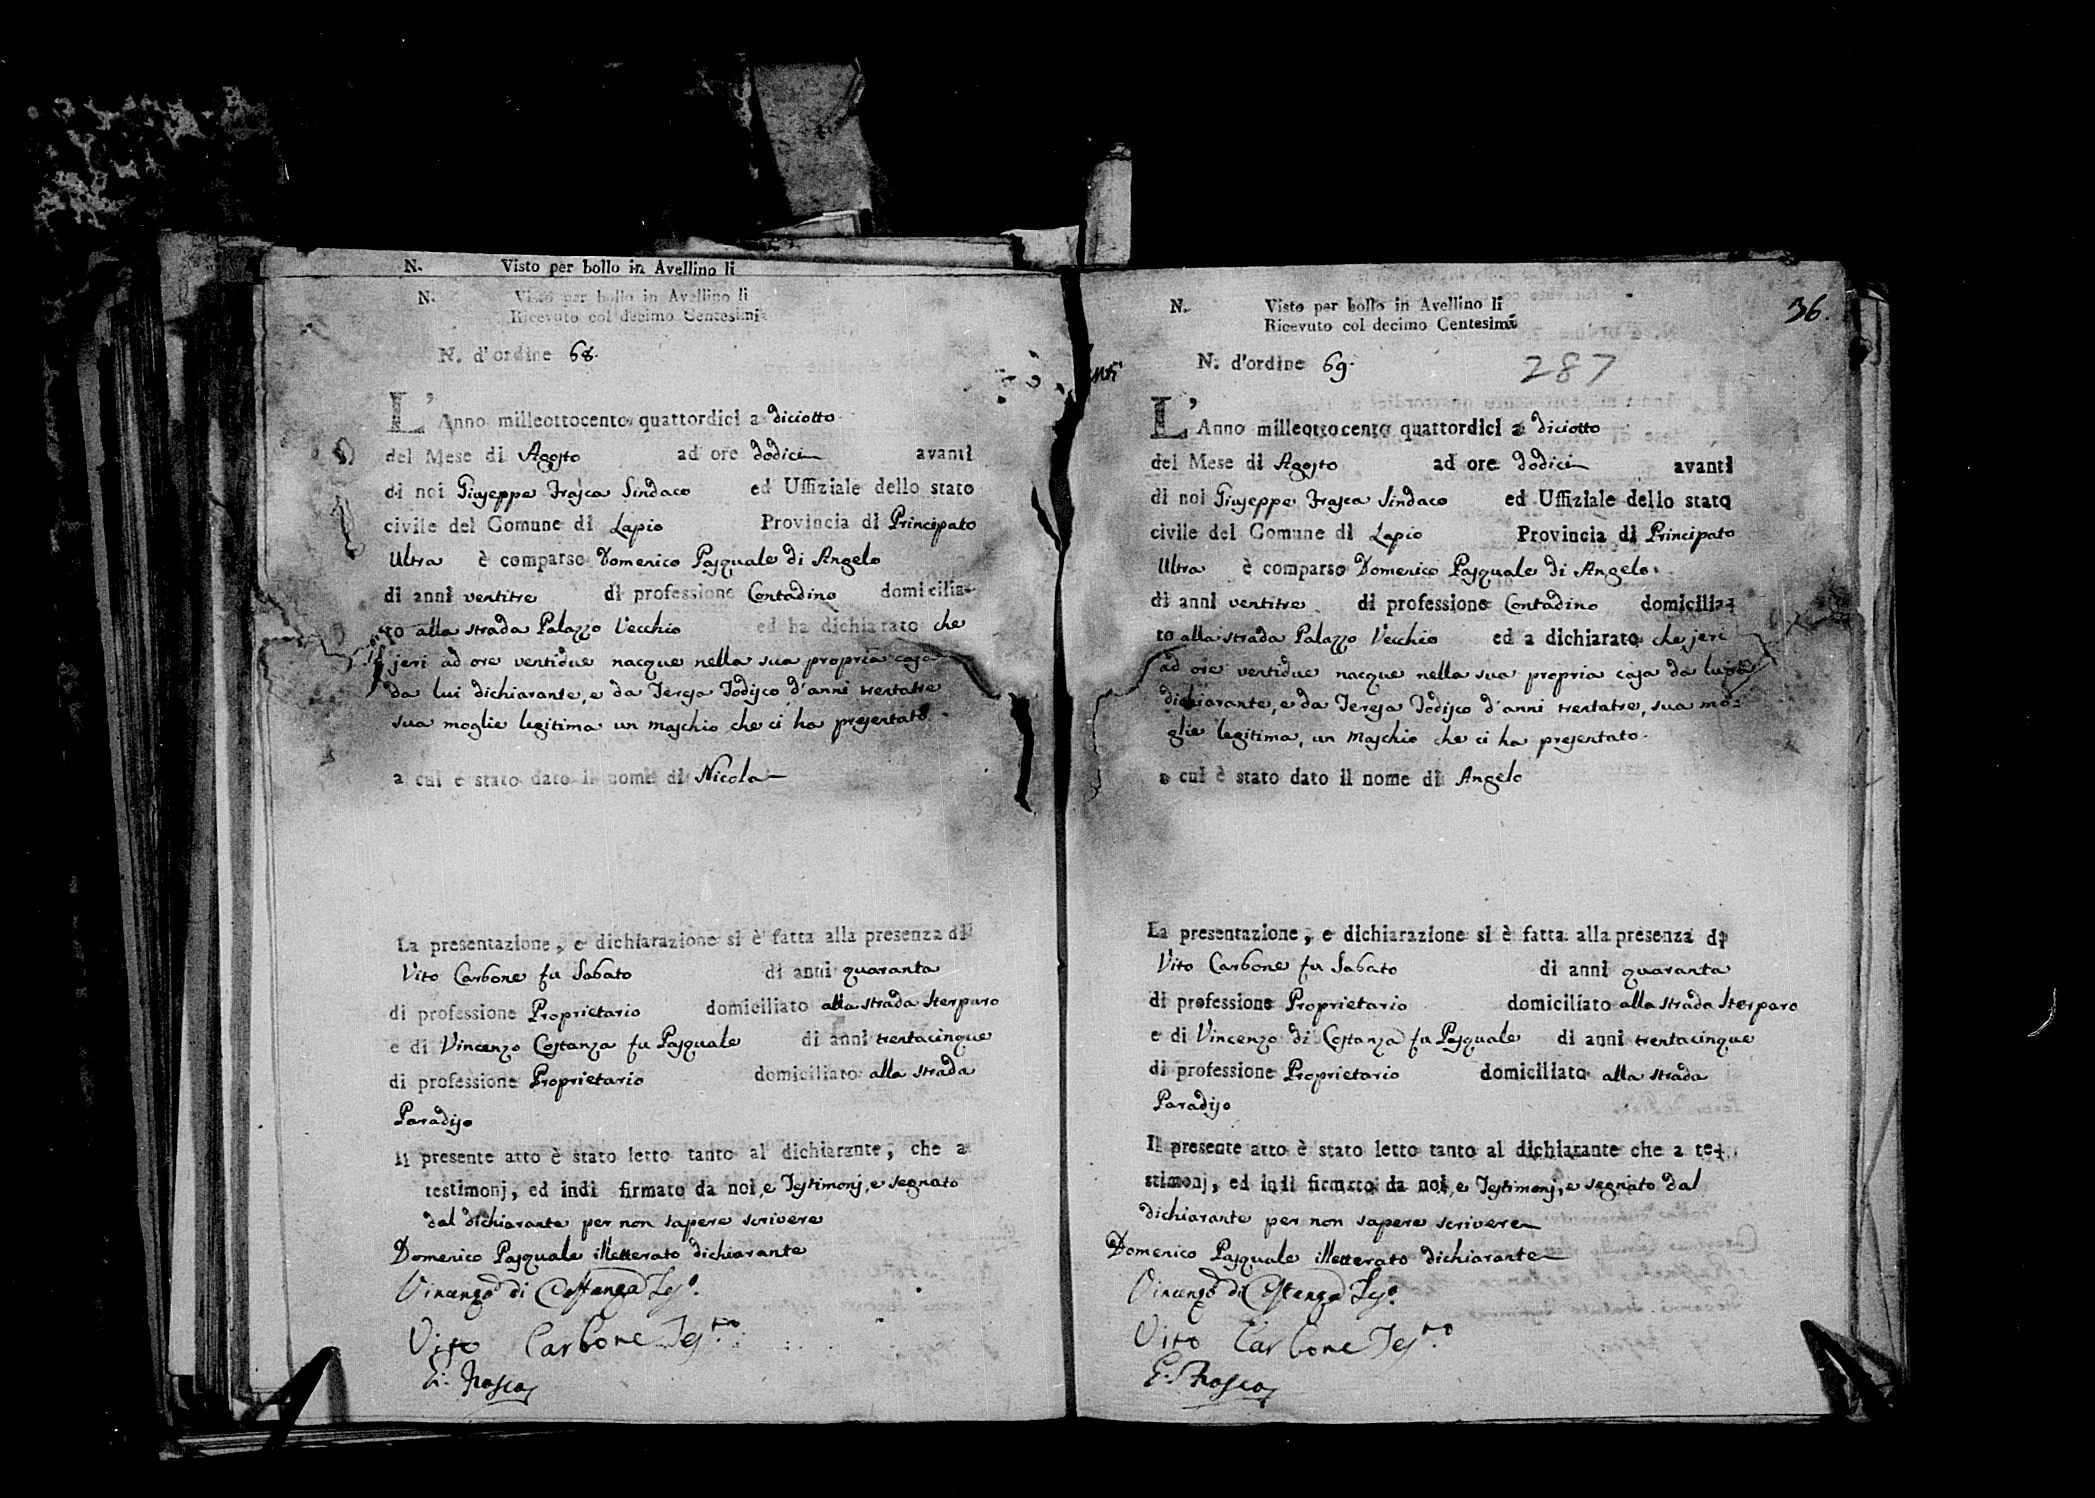 N. Visto per bollo in Avellino li
N. Visto per bollo in Avellino li
Ricevuto col decimo Centesimi
N. d'ordine 68.
L'Anno milleottocento quattordici a diciotto
del Mese di Agosto ad ore dodici avanti
di noi Giuseppe Frasca Sindaco ed Uffiziale dello stato
civile del Comune di Lapio Provincia di Principato
Ultra è comparso Domenico Pasquale di Angelo
di anni ventitre di professione Contadino domicilia-
to alla strada Palazzo Vecchio ed ha dichiarato che
jeri ad ore ventidue nacque nella sua propria casa
da lui dichiarante, e da Teresa Jodisco d'anni trentatre
sua moglie legitima un maschio che ci ha presentato.
a cui e stato dato il nome di Nicola
La presentazione, e dichiarazione si è fatta alla presenza di
Vito Carbone fu Sabato di anni quaranta
di professione Proprietario domiciliato alla strada Sterparo
e di Vincenzo Costanza fu Pasquale di anni trentacinque
di professione Proprietario domiciliato alla strada
Paradiso
Il presente atto è stato letto tanto al dichiarante, che a
testimonj, ed indi firmato da noi, e Testimonj, e segnato
dal dichiarante per non sapere scrivere
Domenico Pasquale illetterato dichiarante
Vincenzo di Costanza Tes.o
Vito Carbone Tes.tro
G. Frasca
36.
N. Visto per bollo in Avellino li
Ricevuto col decimo Centesimi
N. d'ordine 69.
287
L'Anno milleottocento quattordici a diciotto
del Mese di Agosto ad ore dodici avanti
di noi Giuseppe Frasca Sindaco ed Uffiziale dello stato
civile del Comune di Lapio Provincia di Principato
Ultra è comparso Domenico Pasquale di Angelo
di anni ventitre di professione Contadino domicilia-
to alla strada Palazzo Vecchio ed a dichiarato che jeri
ad ore ventidue nacque nella sua propria casa da lui
dichiarante, e da Teresa Jodisco d'anni trentatre, sua mo-
glie legitima, un maschio che ci ha presentato.
a cui è stato dato il nome di Angelo
La presentazione, e dichiarazione si è fatta alla presenza di
Vito Carbone fu Sabato di anni quaranta
di professione Proprietario domiciliato alla strada Sterparo
e di Vincenzo di Costanza fu Pasquale di anni trentacinque
di professione Proprietario domiciliato alla strada
Paradiso
Il presente atto è stato letto tanto al dichiarante che a te-
stimonj, ed indi firmato da noi, e Testimonj, e segnato dal
dichiarante per non sapere scrivere
Domenico Pasquale illetterato dichiarante
Vincenzo di Costanza Tes.o
Vito Carbone Tes.tro
G. Frasca